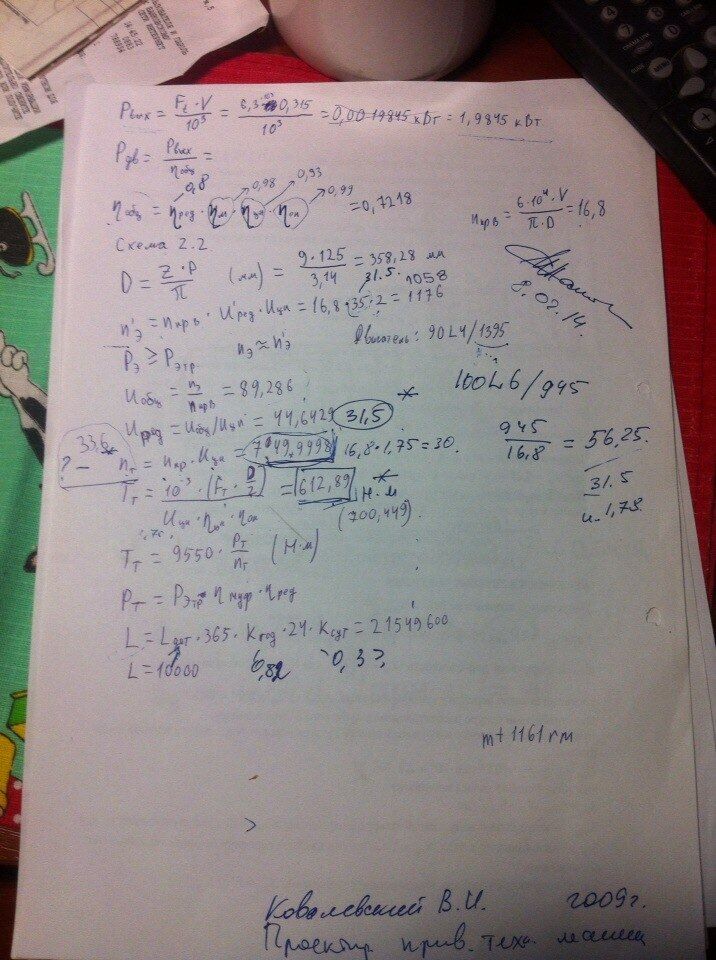 P вых = F_t · V / 10³ = 6,3 · 0,315 / 10³ = 0,0019845 кВт = 1,9845 кВт
P дв = P вых / η общ =
0,8 0,98 0,93 0,99
η общ = η ред · η м · η цп · η оп = 0,7218
n крв = 6·10⁴ · V / π · D = 16,8
Схема 2.2.
D = z · P / π (мм) = 9 · 125 / 3,14 = 358,28 мм
8.02.14.
31.5. 1058
n'э = n крв · U'ред · U цп = 16,8 · 35 · 2 = 1176
Pэ ≥ Pэтр nэ ≈ n'э Двигатель: 90L4/1395
100L6/945
U общ = nэ / n крв = 89,286
U ред = U общ / U цп = 44,6429 31,5
945 / 16,8 = 56,25.
33,6
? –
n т = n кр · U цп = 7049,9998 16,8 · 1,75 = 30.
31.5
и 1,78
T т = 10⁻³ · (F т · D/2) / U цп · η цп · η оп = 612,89 Н·м
(700,449)
T т = 9550 · P т / n т (Н·м)
P т = P этр · η муф · η ред
L = L лет · 365 · K год · 24 · K сут = 21549600
L = 10000 0,82 0,3
mt1161 гм
>
Ковалевский В.И. 2009г.
Проектир прив. техн. машин